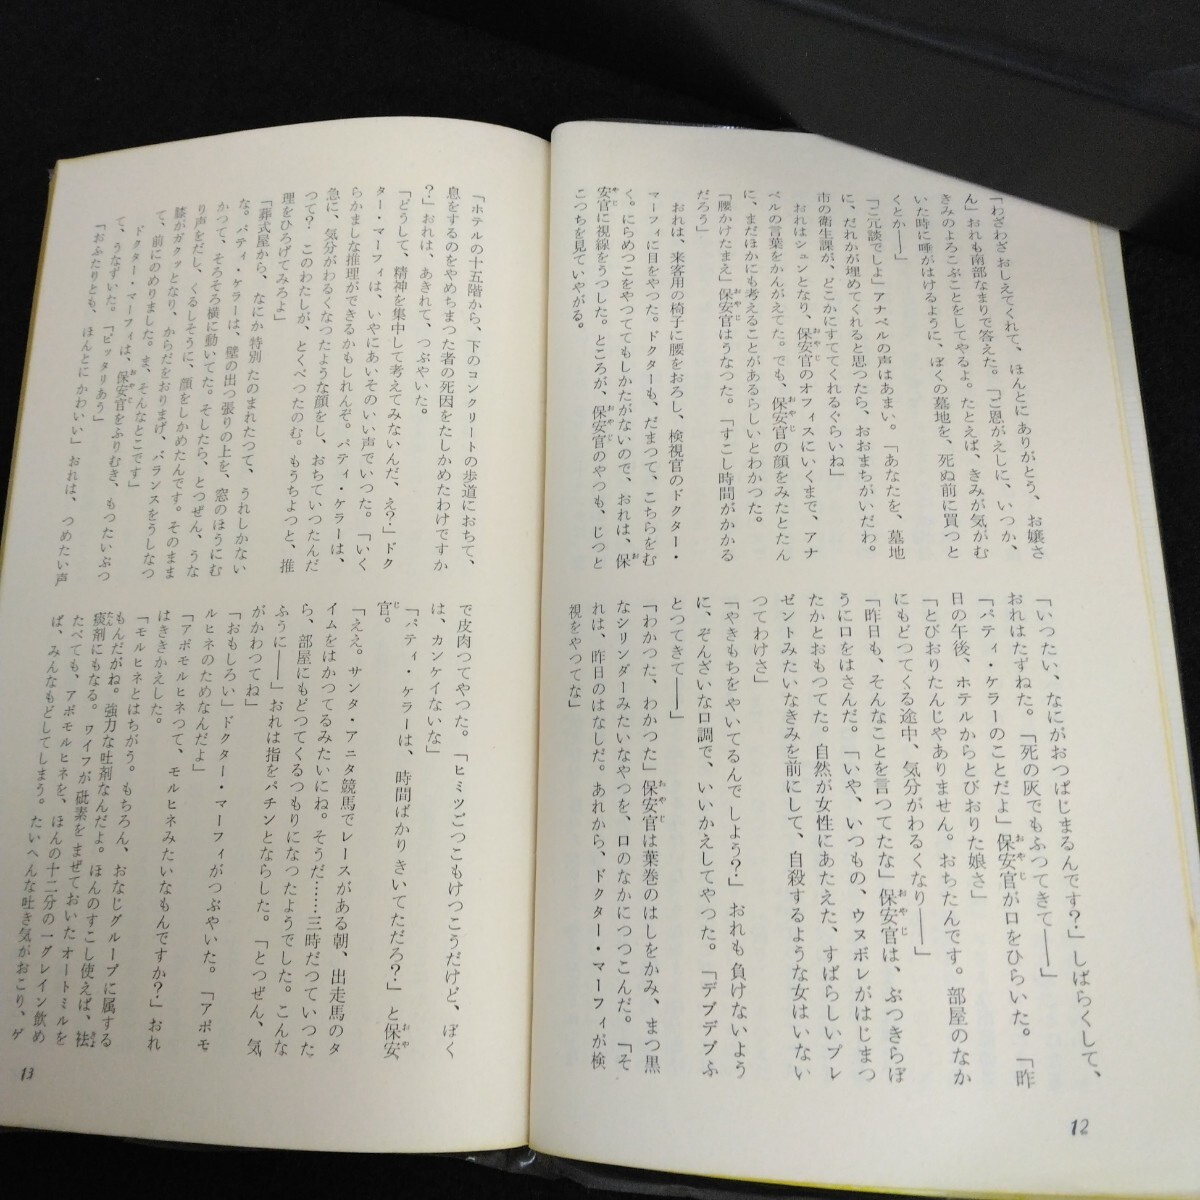 「わざわざおしえてくれて、ほんとにありがとう、お嬢さ
ん」おれも南部なまりで答えた。「ご恩がえしに、いつか、
きみのよろこぶことをしてやるよ。たとえば、きみが気がむ
いた時に唾がはけるように、ぼくの墓地を、死ぬ前に買つと
くとか――」
「ご冗談でしよ」アナベルの声はあまい。「あなたを、墓地
に、だれかが埋めてくれると思つたら、おおまちがいだわ。
市の衛生課が、どこかにすててくれるぐらいね」
おれはシュンとなり、保安官のオフィスにいくまで、アナ
ベルの言葉をかんがえてた。でも、保安官の顔をみたとたん
に、まだほかにも考えることがあるらしいとわかつた。
「腰かけたまえ」保安官はうなつた。「すこし時間がかかる
だろう」
おれは、来客用の椅子に腰をおろし、検視官のドクター・
マーフィに目をやつた。ドクターも、だまつて、こちらをむ
く。にらめつこをやつててもしかたがないので、おれは、保
安官に視線をうつした。ところが、保安官のやつも、じつと
こつちを見ていやがる。
「いつたい、なにがおつぱじまるんです?」しばらくして、
おれはたずねた。「死の灰でもふつてきて――」
「パティ・ケラーのことだよ」保安官が口をひらいた。「昨
日の午後、ホテルからとびおりた娘さ」
「とびおりたんじやありません。おちたんです。部屋のなか
にもどつてくる途中、気分がわるくなり――」
「昨日も、そんなことを言つてたな」保安官は、ぶつきらぼ
うに口をはさんだ。「いや、いつもの、ウヌボレがはじまつ
たかとおもつてた。自然が女性にあたえた、すばらしいプレ
ゼントみたいなきみを前にして、自殺するような女はいない
つてわけさ」
「やきもちをやいてるんでしよう?」おれも負けないよう
に、ぞんざいな口調で、いいかえしてやつた。「デブデブふ
とつてきて――」
「わかつた、わかつた」保安官は葉巻のはしをかみ、まつ黒
なシリンダーみたいなやつを、口のなかにつつこんだ。「そ
れは、昨日のはなしだ。あれから、ドクター・マーフィが検
視をやつてな」
12
「ホテルの十五階から、下のコンクリートの歩道におちて、
息をするのをやめちまつた者の死因をたしかめたわけですか
?」おれは、あきれて、つぶやいた。
「どうして、精神を集中して考えてみないんだ、え?」ドク
ター・マーフィは、いやにあいそのいい声でいつた。「いく
らかましな推理ができるかもしれんぞ。パティ・ケラーは、
急に、気分がわるくなつたような顔をし、おちていつたんだ
つて? このわたしが、とくべつたのむ。もうちよつと、推
理をひろげてみろよ」
「葬式屋から、なにか特別たのまれたつて、うれしかない
な。パティ・ケラーは、壁の出つ張りの上を、窓のほうにむ
かつて、そろそろ横に動いてた。そしたら、とつぜん、うな
り声をだし、くるしそうに、顔をしかめたんです。そのまま
膝がガクッとなり、からだをおりまげ、バランスをうしなつ
て、前にのめりました。ま、そんなとこです」
ドクター・マーフィは、保安官をふりむき、もつたいぶつ
て、うなずいた。「ピッタリあう」
「おふたりとも、ほんとにかわいい」おれは、つめたい声
で皮肉つてやつた。「ヒミツごつこもけつこうだけど、ぼく
は、カンケイないな」
「パティ・ケラーは、時間ばかりきいてただろ?」と保安
官。
「ええ。サンタ・アニタ競馬でレースがある朝、出走馬のタ
イムをはかつてるみたいにね。そうだ……三時だつていつた
ら、部屋にもどつてくるつもりになつたようでした。こんな
ふうに――」おれは指をパチンとならした。「とつぜん、気
がかわつてね」
「おもしろい」ドクター・マーフィがつぶやいた。「アポモ
ルヒネのためなんだよ」
「アポモルヒネつて、モルヒネみたいなもんですか?」おれ
はききかえした。
「モルヒネとはちがう。もちろん、おなじグループに属する
もんだがね。強力な吐剤なんだよ。ほんのすこし使えば、袪
痰剤にもなる。ワイフが砒素をまぜておいたオートミルを
たべても、アポモルヒネを、ほんの十二分の一グレイン飲め
ば、みんなもどしてしまう。たいへんな吐き気がおこり、ゲ
13